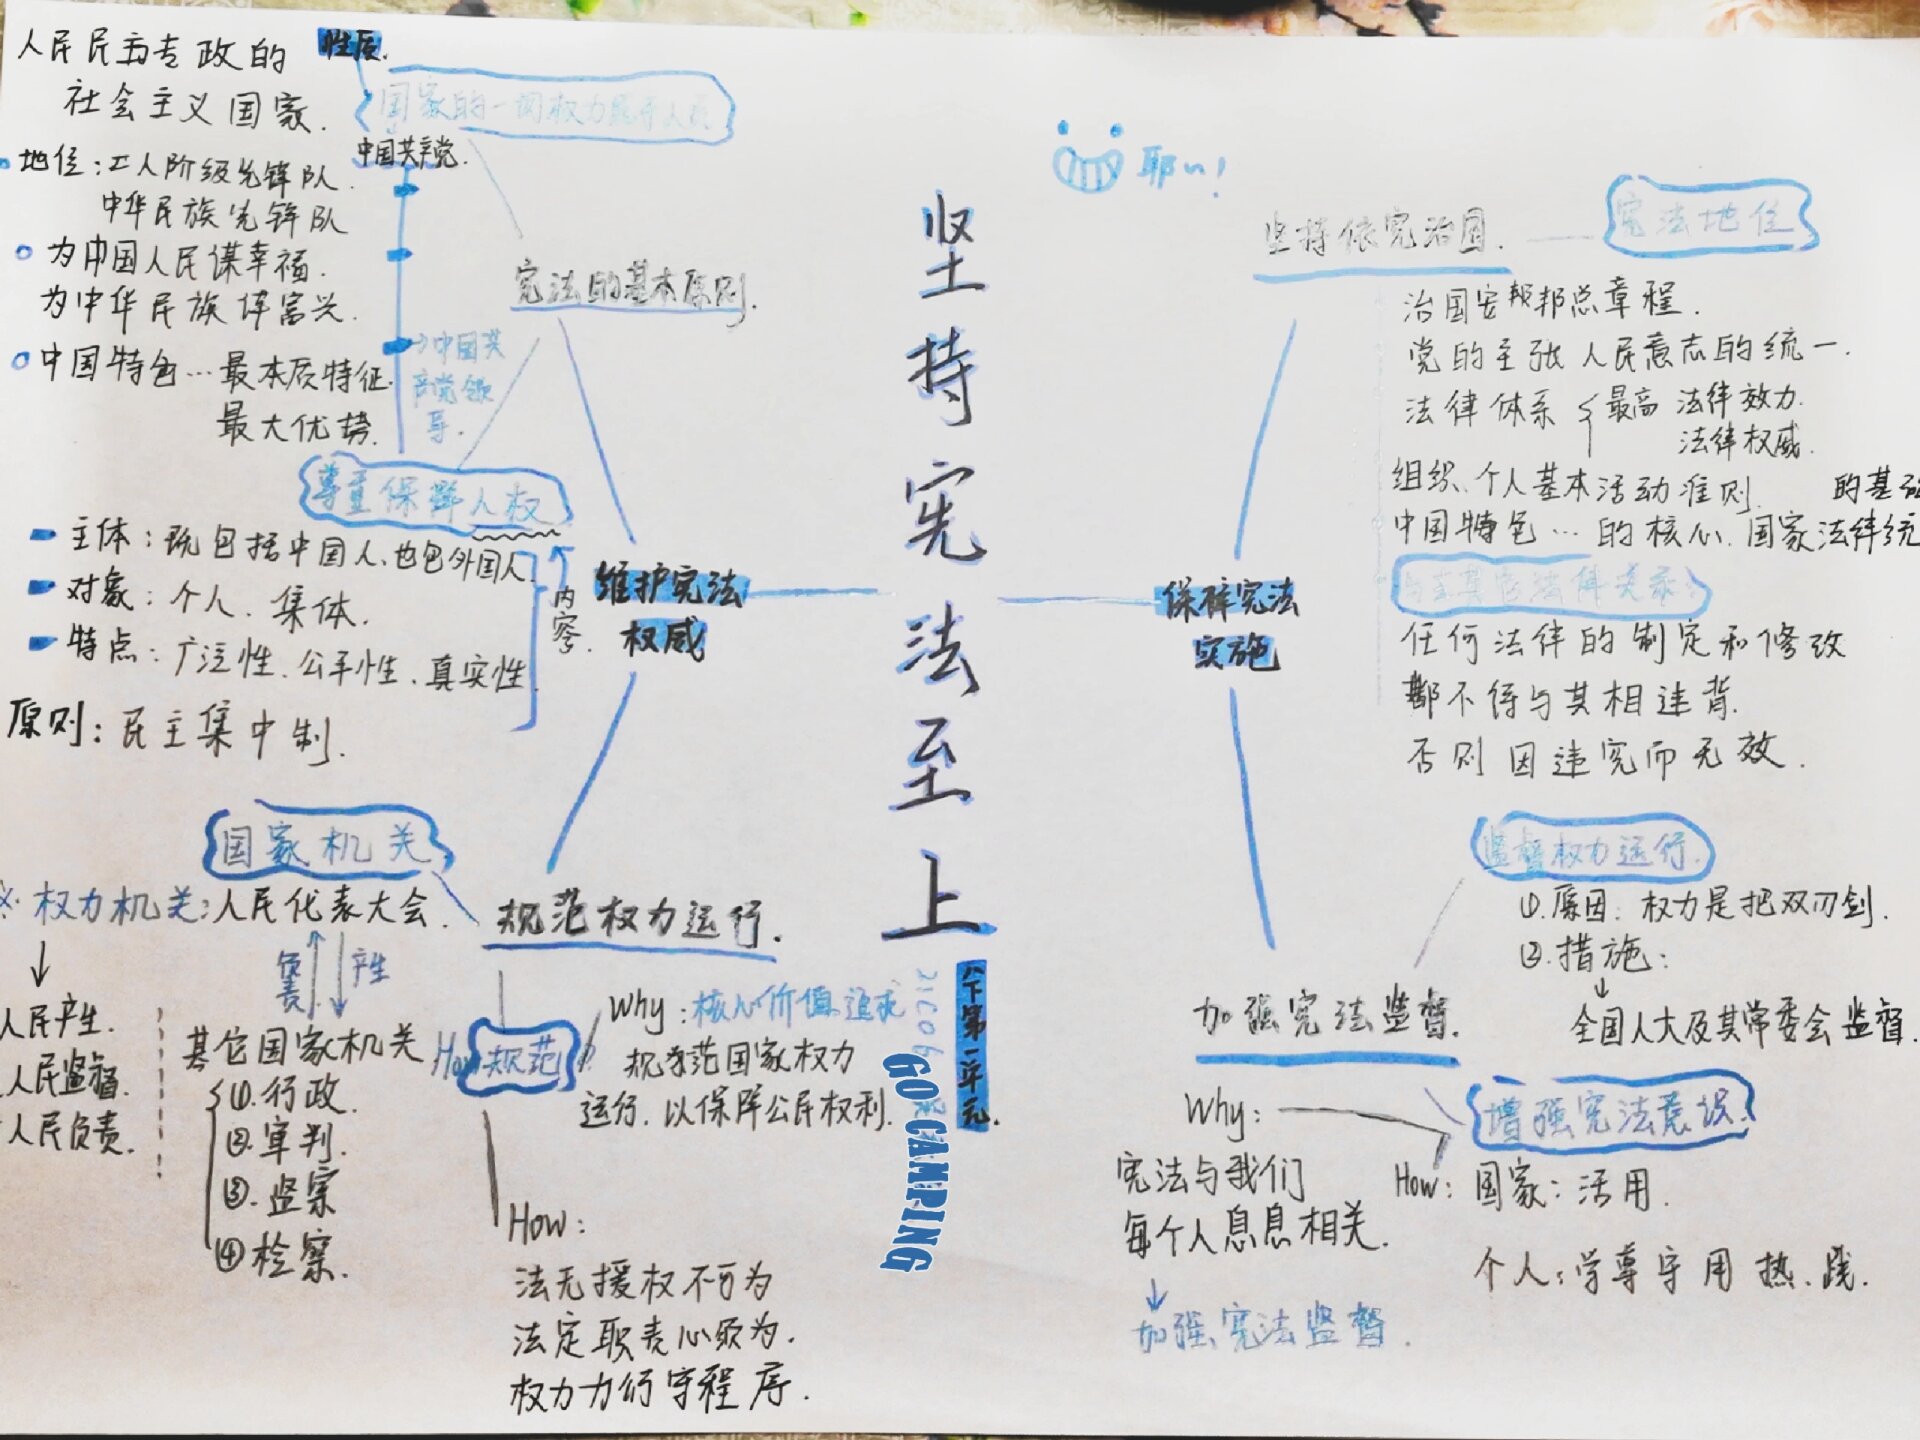 坚持宪法至上
八下第一单元
GO CAMPING
耶~！
维护宪法
权威
宪法的基本原则.
国家的一切权力属于人民
性质.
人民民主专政的
社会主义国家.
中国共产党.
地位：工人阶级先锋队.
中华民族先锋队
为中国人民谋幸福.
为中华民族谋富兴.
中国特色…最本质特征.
最大优势.
→中国共
产党领
导.
尊重保障人权
内容.
主体：既包括中国人、也包外国人.
对象：个人、集体.
特点：广泛性、公平性、真实性.
原则：民主集中制.
规范权力运行.
国家机关
※权力机关：人民代表大会.
人民产生.
人民监督.
人民负责.
负责
产生
其它国家机关
①.行政.
②.审判.
③.监察
④检察.
How 规范
Why：核心价值追求
规范国家权力
运行.以保障公民权利.
How：
法无授权不可为
法定职责必须为.
权力行守程序.
保障宪法
实施
坚持依宪治国.
宪法地位
治国安邦总章程.
党的主张人民意志的统一.
法律体系{最高 法律效力.
法律权威.
组织、个人基本活动准则.
的基础
中国特色…的核心.国家法律统
与其它法律关系
任何法律的制定和修改
都不得与其相违背.
否则因违宪而无效.
加强宪法监督.
监督权力运行.
①.原因：权力是把双刃剑.
②.措施：
全国人大及其常委会监督.
增强宪法意识.
Why：
宪法与我们
每个人息息相关.
加强宪法监督.
How：国家：活用.
个人：学尊守用热、践.